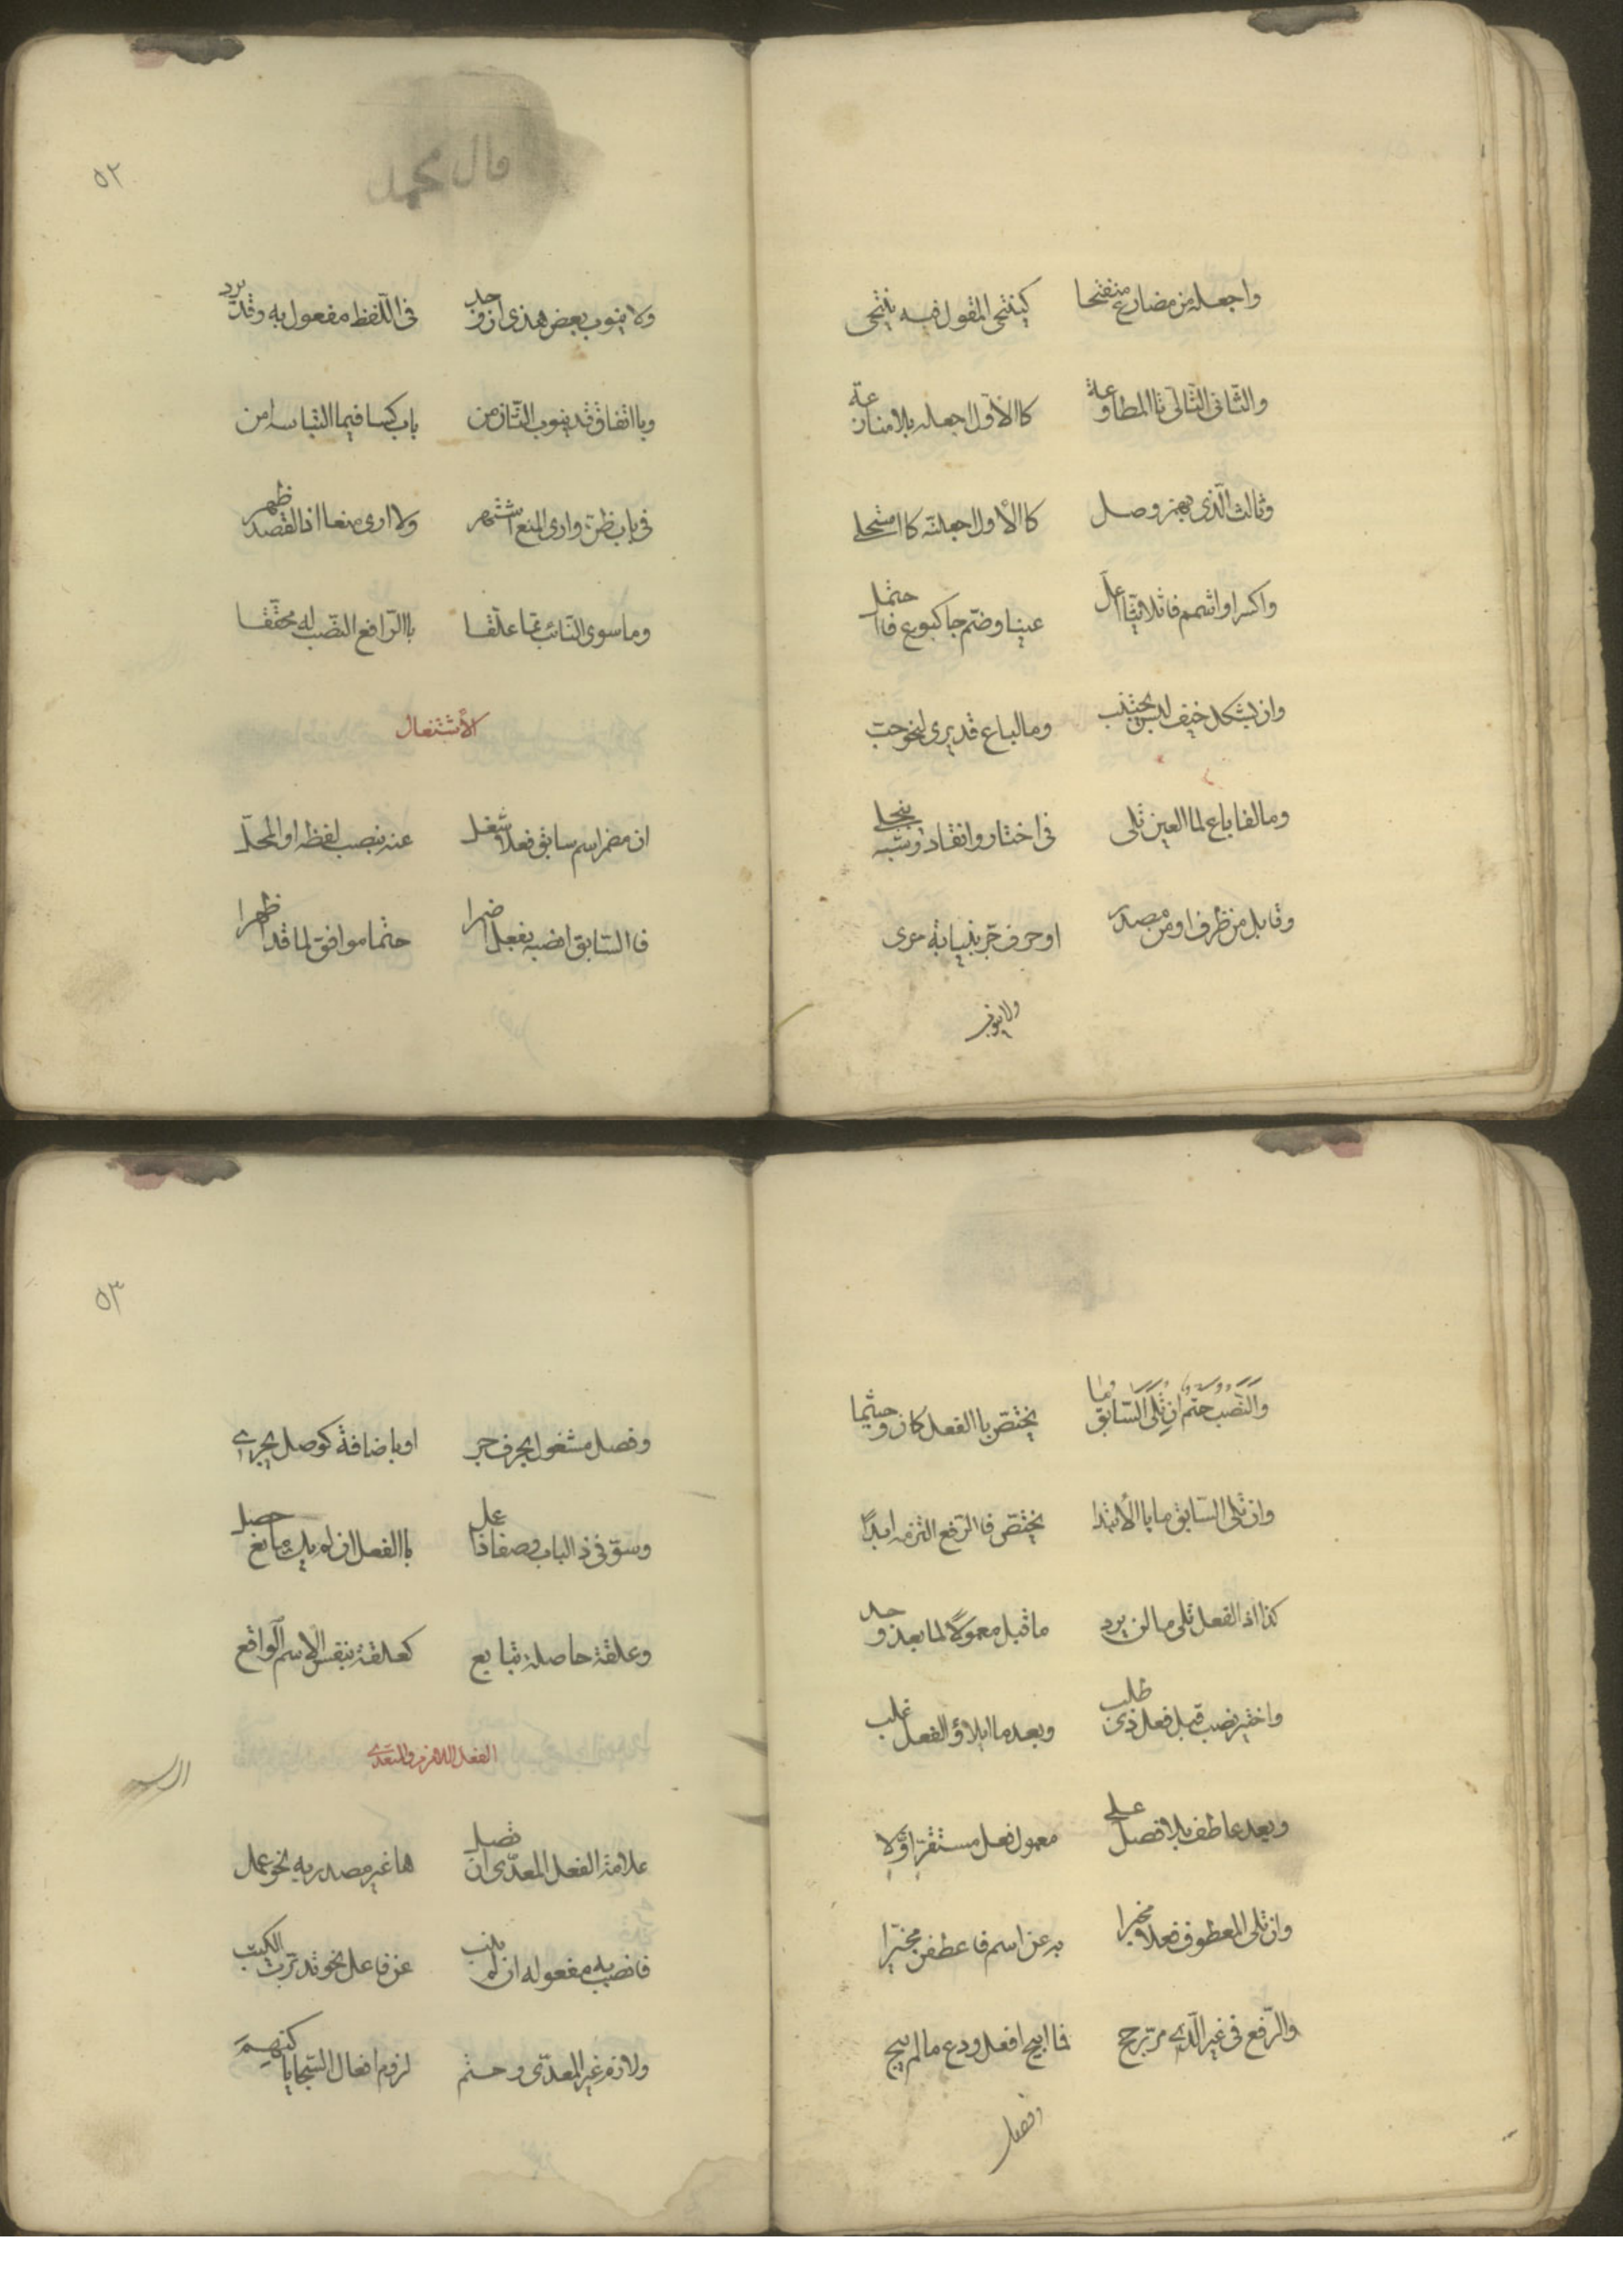 واجعله من مضارع منفتحا كينتحى المقول فيه ينتحى
والثانى التالى تا المطاوعة كاالاول اجعله بلا منازعة
وثالث الذى بهمز وصل كاالأول اجعلنه كااستحلى
واكسر او اشمم فا ثلاثيا اعل عينا وضم جا كبوع فااحتمل
وان بشكل خيف لبس يجتنب وما لباع قد يرى لنحو حب
وما لفا باع لما العين تلى فى اختار وانقاد وشبه ينجلى
وقابل من ظرف او من مصدر او حرف جر بنيابة حرى
ولا ينوب
قال محمد
٥٢
ولا ينوب بعض هذى ان وجد فى اللفظ مفعول به وقد يرد
وباتفاق قد ينوب الثان من باب كسا فيما التباسه امن
فى باب ظن وارى المنع اشتهر ولا ارى منعا اذا القصد ظهر
وما سوى النائب مما علقا باالرافع النصب له محققا
الأشتغال
ان مضمر اسم سابق فعلا شغل عنه بنصب لفظه او المحل
فاالسابق انصبه بفعل اضمرا حتما موافق لما قد اظهرا
والنصب حتم ان تلى السابق ما يختص باالفعل كان وحيثما
وان تلى السابق ما باالأبتدا يختص فاالرفع التزمه ابدا
كذا اذا الفعل تلى ما لن يرد ما قبل معمولا لما بعد وجد
واختير نصب قبل فعل ذى طلب وبعد ما ايلاؤ الفعل غلب
وبعد عاطف بلا فصل على معمول فعل مستقر اولا
وان تلى المعطوف فعلا مخبرا به عن اسم فاعطفن مخيرا
والرفع فى غير الذى مر ترجح فما ابيح افعل ودع ما لم يبح
وفصل
٥٣
وفصل مشغول بحرف جر او باضافة كوصل يجرى
وسو فى ذا الباب وصفا ذا عمل باالفعل ان لم يك مانع حصل
وعلقة حاصلة بتابع كعلقة بنفس الاسم الواقع
الفعل اللازم والمتعدى
علامة الفعل المعدى ان تصل ها غير مصدر به نحو عمل
فانصب به مفعوله ان لم ينب عن فاعل نحو تدبرت الكتب
ولازم غير المعدى وحتم لزوم افعال السجايا كنهم